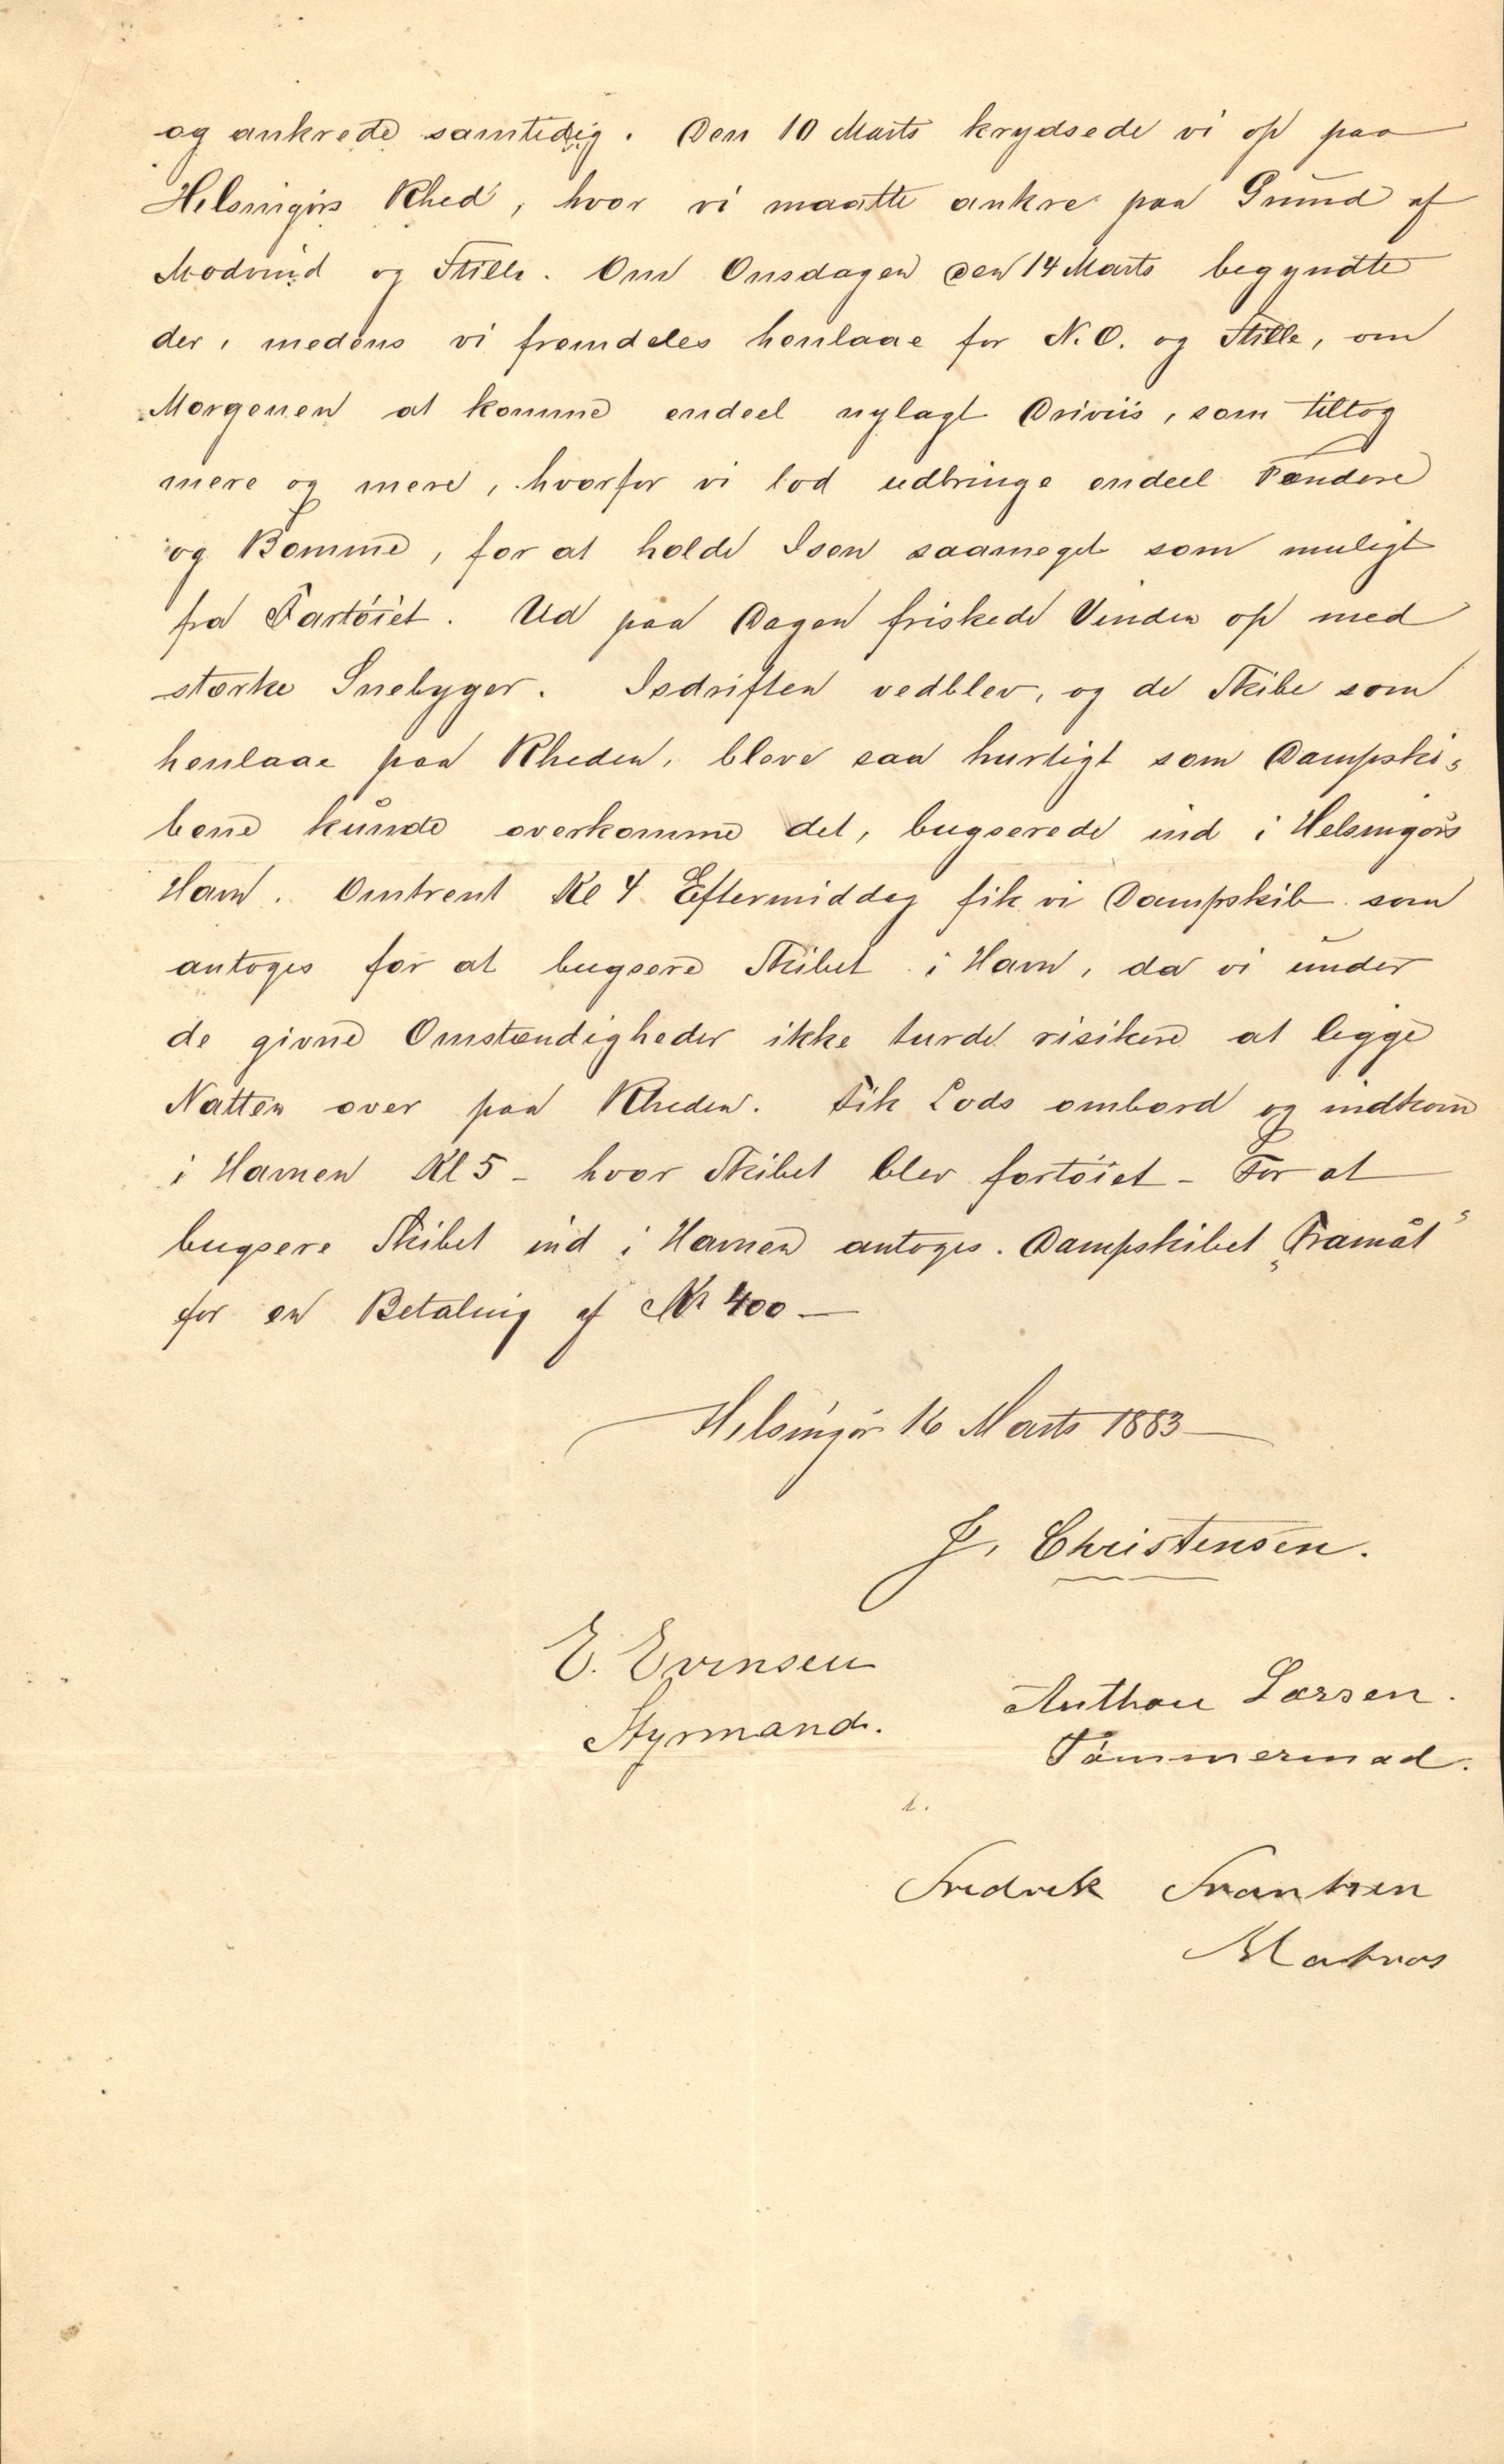 og ankrede samtidig. Den 10 Marts krydsede vi op paa
Helsingörs Rhed, hvor vi maatte ankre paa Grund af
Modvind og Stille. Om Onsdagen den 14 Marts begyndte
der, medens vi fremdeles henlaae for N.O. og Stille, om
Morgenen at komme endeel nylagt Driviis, som tiltog
mere og mere, hvorfor vi lod udbringe endeel Fendere
og Bomme, for at holde Isen saameget som muligt
fra Fartöiet. Ud paa Dagen friskede Vinden op med
stærke Snebyger. Isdriften vedblev, og de Skibe som
henlaae paa Rheden, bleve saa hurtigt som Dampski-
bene kunde overkomme det, bugserede ind i Helsingörs
Havn. Omtrent Kl 4 Eftermiddag fik vi Dampskib som
antoges for at bugsere Skibet i Havn, da vi under
de givne Omstændigheder ikke turde risikere at ligge
Natten over paa Rheden. Fik Lods ombord og indkom
i Havnen Kl 5 - hvor Skibet blev fortöiet - For at
bugsere Skibet ind i Havnen antoges Dampskibet „Framåt"
for en Betaling af Kr 400 —
Helsingör 16 Marts 1883
J. Christensen.
E. Evensen
Styrmand.
Anthon Larsen.
Tömmermad.
Fredrek Frantzen
Matros